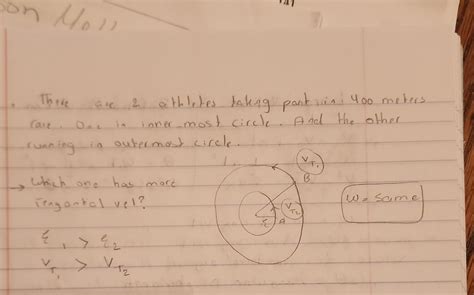 There are 2 athletes taking part in 400 meters
race. One in inner most circle. And the other
running in outermost circle.
→ Which one has more
tengontal vel?
V_T₁
B
V_T₂
A
W = same
r₁ > r₂
V_T₁ > V_T₂